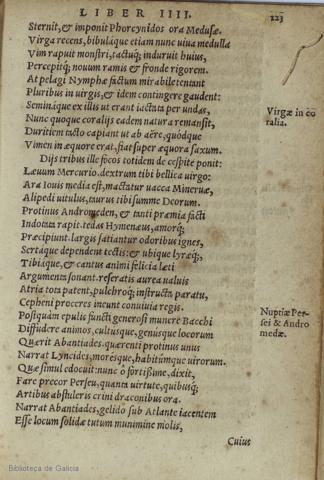 LIBER IIII.
223
Sternit, & imponit Phorcynidos ora Medusæ.
Virga recens, bibulaque etiam nunc uiua medulla
Vim rapuit monstri, tactuq; induruit huius,
Percepitq; nouum ramis & fronde rigorem.
At pelagi Nymphæ factum mirabile tentant
Pluribus in uirgis, & idem contingere gaudent:
Seminaque ex illis ut erant iactata per undas,
Nunc quoque coralijs eadem natura remansit,
Duritiem tacto capiant ut ab aëre, quódque
Vimen in æquore erat, fiat super æquora saxum.
Virgæ in co
ralia.
Dijs tribus ille focos totidem de cespite ponit:
Læuum Mercurio, dextrum tibi bellica uirgo:
Ara Iouis media est, mactatur uacca Mineruæ,
Alipedi uitulus, taurus tibi summe Deorum.
Protinus Andromeden, & tanti præmia facti
Indotata rapit. tedas Hymenæus, amorq́;
Præcipiunt. largis satiantur odoribus ignes,
Sertaque dependent tectis: & ubique lyræq́;,
Tibiaque, & cantus animi felicia læti
Argumenta sonant. referatis aurea ualuis
Atria tota patent, pulchroq́; instructa paratu,
Cepheni proceres ineunt conuiuia regis.
Postquàm epulis functi generosi munere Bacchi
Diffudere animos, cultusque, genusque locorum
Quærit Abantiades. quærenti protinus unus
Narrat Lyncides, moresque, habitúmque uirorum.
Nuptiæ Per-
sei & Andro
medæ.
Quæ simul edocuit: nunc ò fortissime, dixit,
Fare precor Perseu, quanta uirtute, quibusq́;
Artibus abstuleris crini draconibus ora.
Narrat Abantiades, gelido sub Atlante iacentem
Esse locum solidæ tutum munimine molis,
Cuius
Biblioteca de Galicia